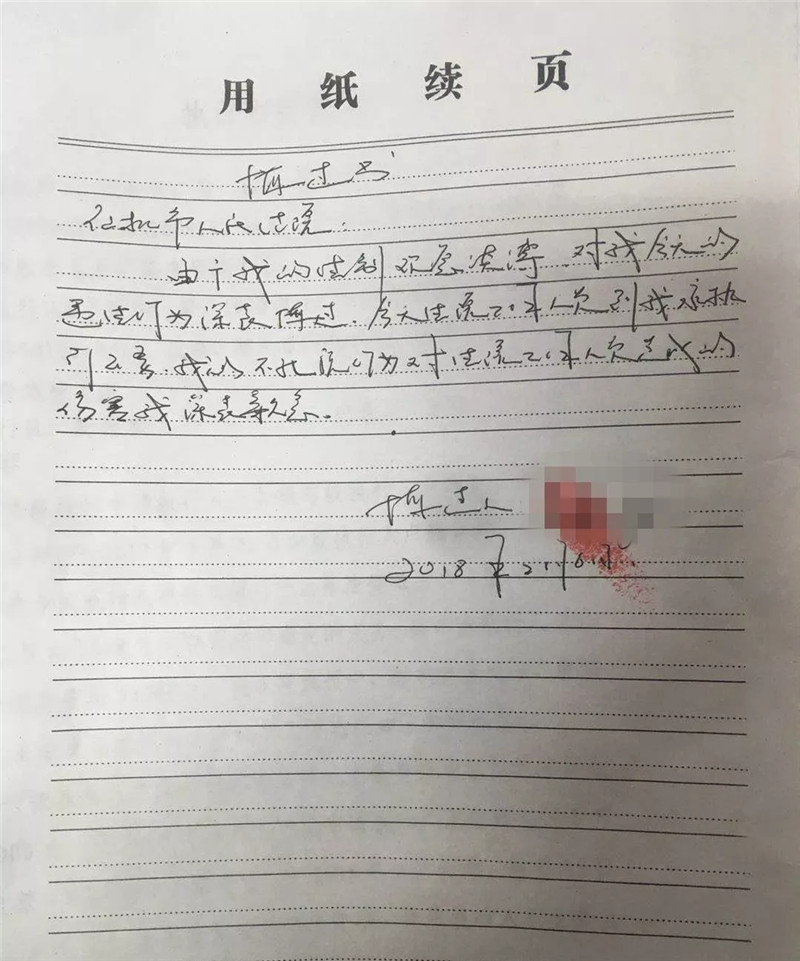 用纸续页
悔过书
仙桃市人民法院:
由于我的法制观念淡薄、对我今天的
违法行为深表悔过。今天法院工作人员到我家执
行公务。我的不礼貌行为对法院工作人员造成的
伤害我深表歉意。
悔过人
2018年